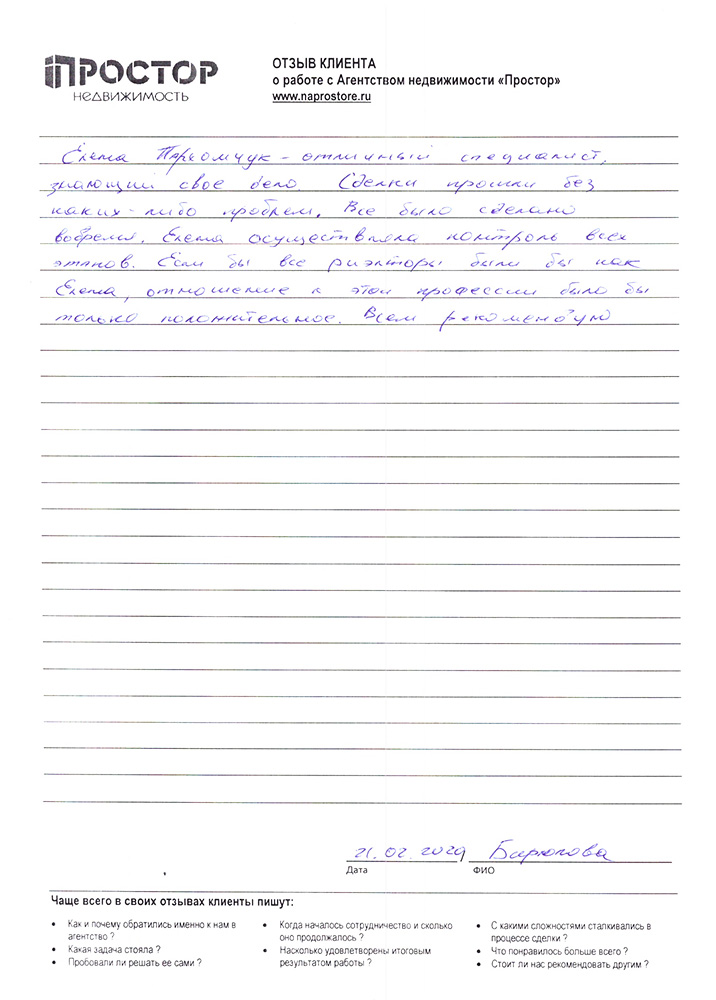 ПРОСТОР
НЕДВИЖИМОСТЬ
ОТЗЫВ КЛИЕНТА
о работе с Агентством недвижимости «Простор»
www.naprostore.ru
Елена Пархомчук - отличный специалист,
знающий свое дело. Сделки прошли без
каких-либо проблем. Все было сделано
вовремя. Елена осуществляла контроль всех
этапов. Если бы все риэлторы были бы как
Елена, отношение к этой профессии было бы
только положительное. Всем рекомендую
21.02.2029 Бирюкова
Дата ФИО
Чаще всего в своих отзывах клиенты пишут:
• Как и почему обратились именно к нам в
агентство ?
• Какая задача стояла ?
• Пробовали ли решать ее сами ?
• Когда началось сотрудничество и сколько
оно продолжалось ?
• Насколько удовлетворены итоговым
результатом работы ?
• С какими сложностями сталкивались в
процессе сделки ?
• Что понравилось больше всего ?
• Стоит ли нас рекомендовать другим ?